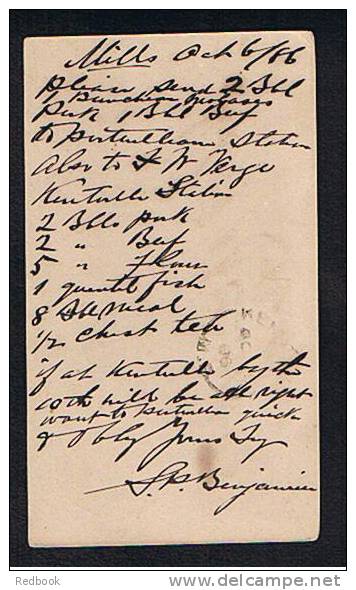 Mills Oct 6/86
Please send 2 Bbl
2 Puncheon Molasses
Pork 1 Bbl Beef
to Station
Also to F W Verge
Kentville Station
2 Bbls pork
2 " Beef
5 " Flour
1 quintl fish
8 Bbl meal
1/2 chest tea
if at Kentville by the
10th will be all right
want to quick
& obly Yours Try
S.P. Benjamin
Redbook
www.delcampe.net